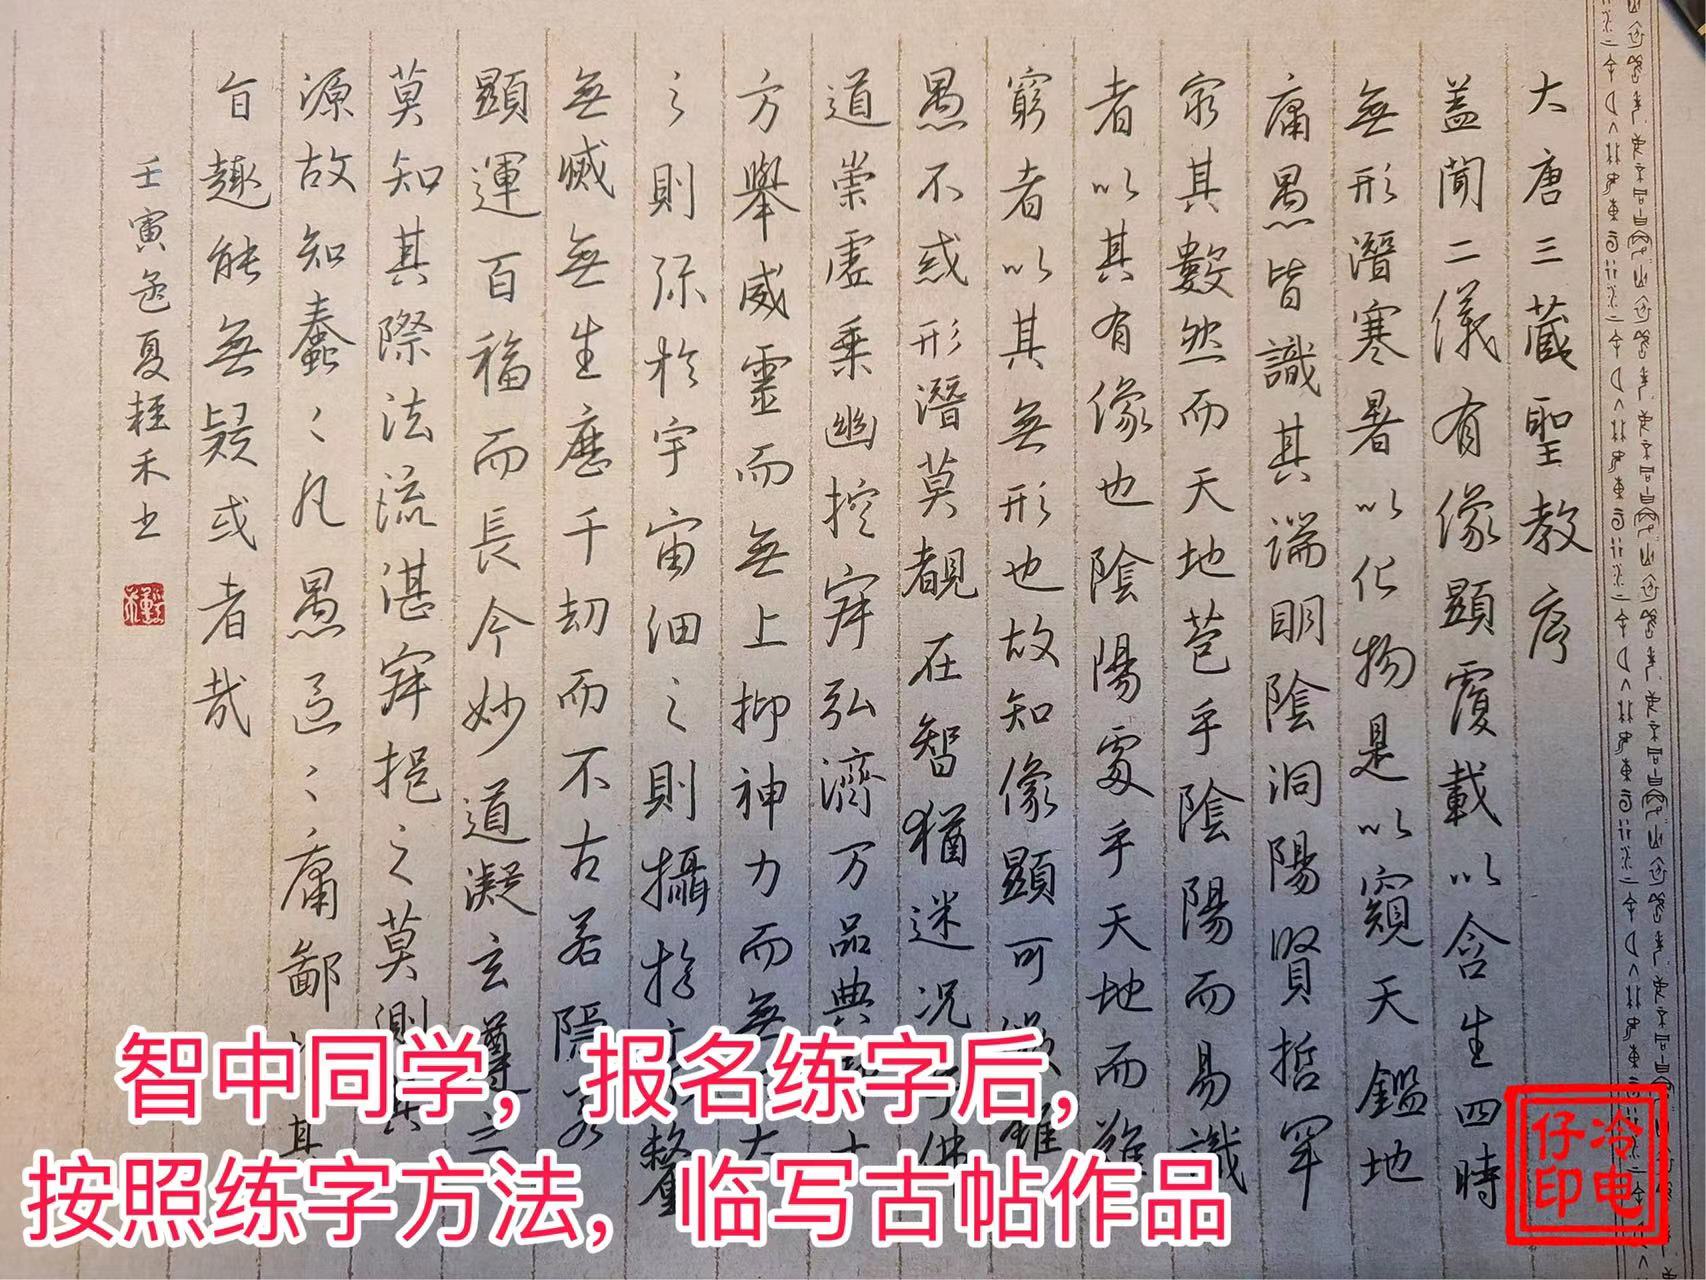 大唐三蔵聖教序
盖聞二儀有像顯覆載以含生四時
無形潛寒暑以化物是以窺天鑑地
庸愚皆識其端明陰洞陽賢哲罕
窮其數然而天地苞乎陰陽而易識
者以其有像也陰陽處乎天地而難
窮者以其無形也故知像顯可徵雖
愚不惑形潛莫覩在智猶迷況乎佛
道崇虛乗幽控寂弘濟万品典
方舉威靈而無上抑神力而無
之則弥於宇宙細之則攝於豪釐
無滅無生歷千劫而不古若隱若
顯運百福而長今妙道凝玄遵之
莫知其際法流湛寂挹之莫測其
源故知蠢〻凡愚區〻庸鄙
旨趣能無疑或者哉
壬寅孟夏輊禾书
智中同学，报名练字后，
按照练字方法，临写古帖作品
冷电
仔印